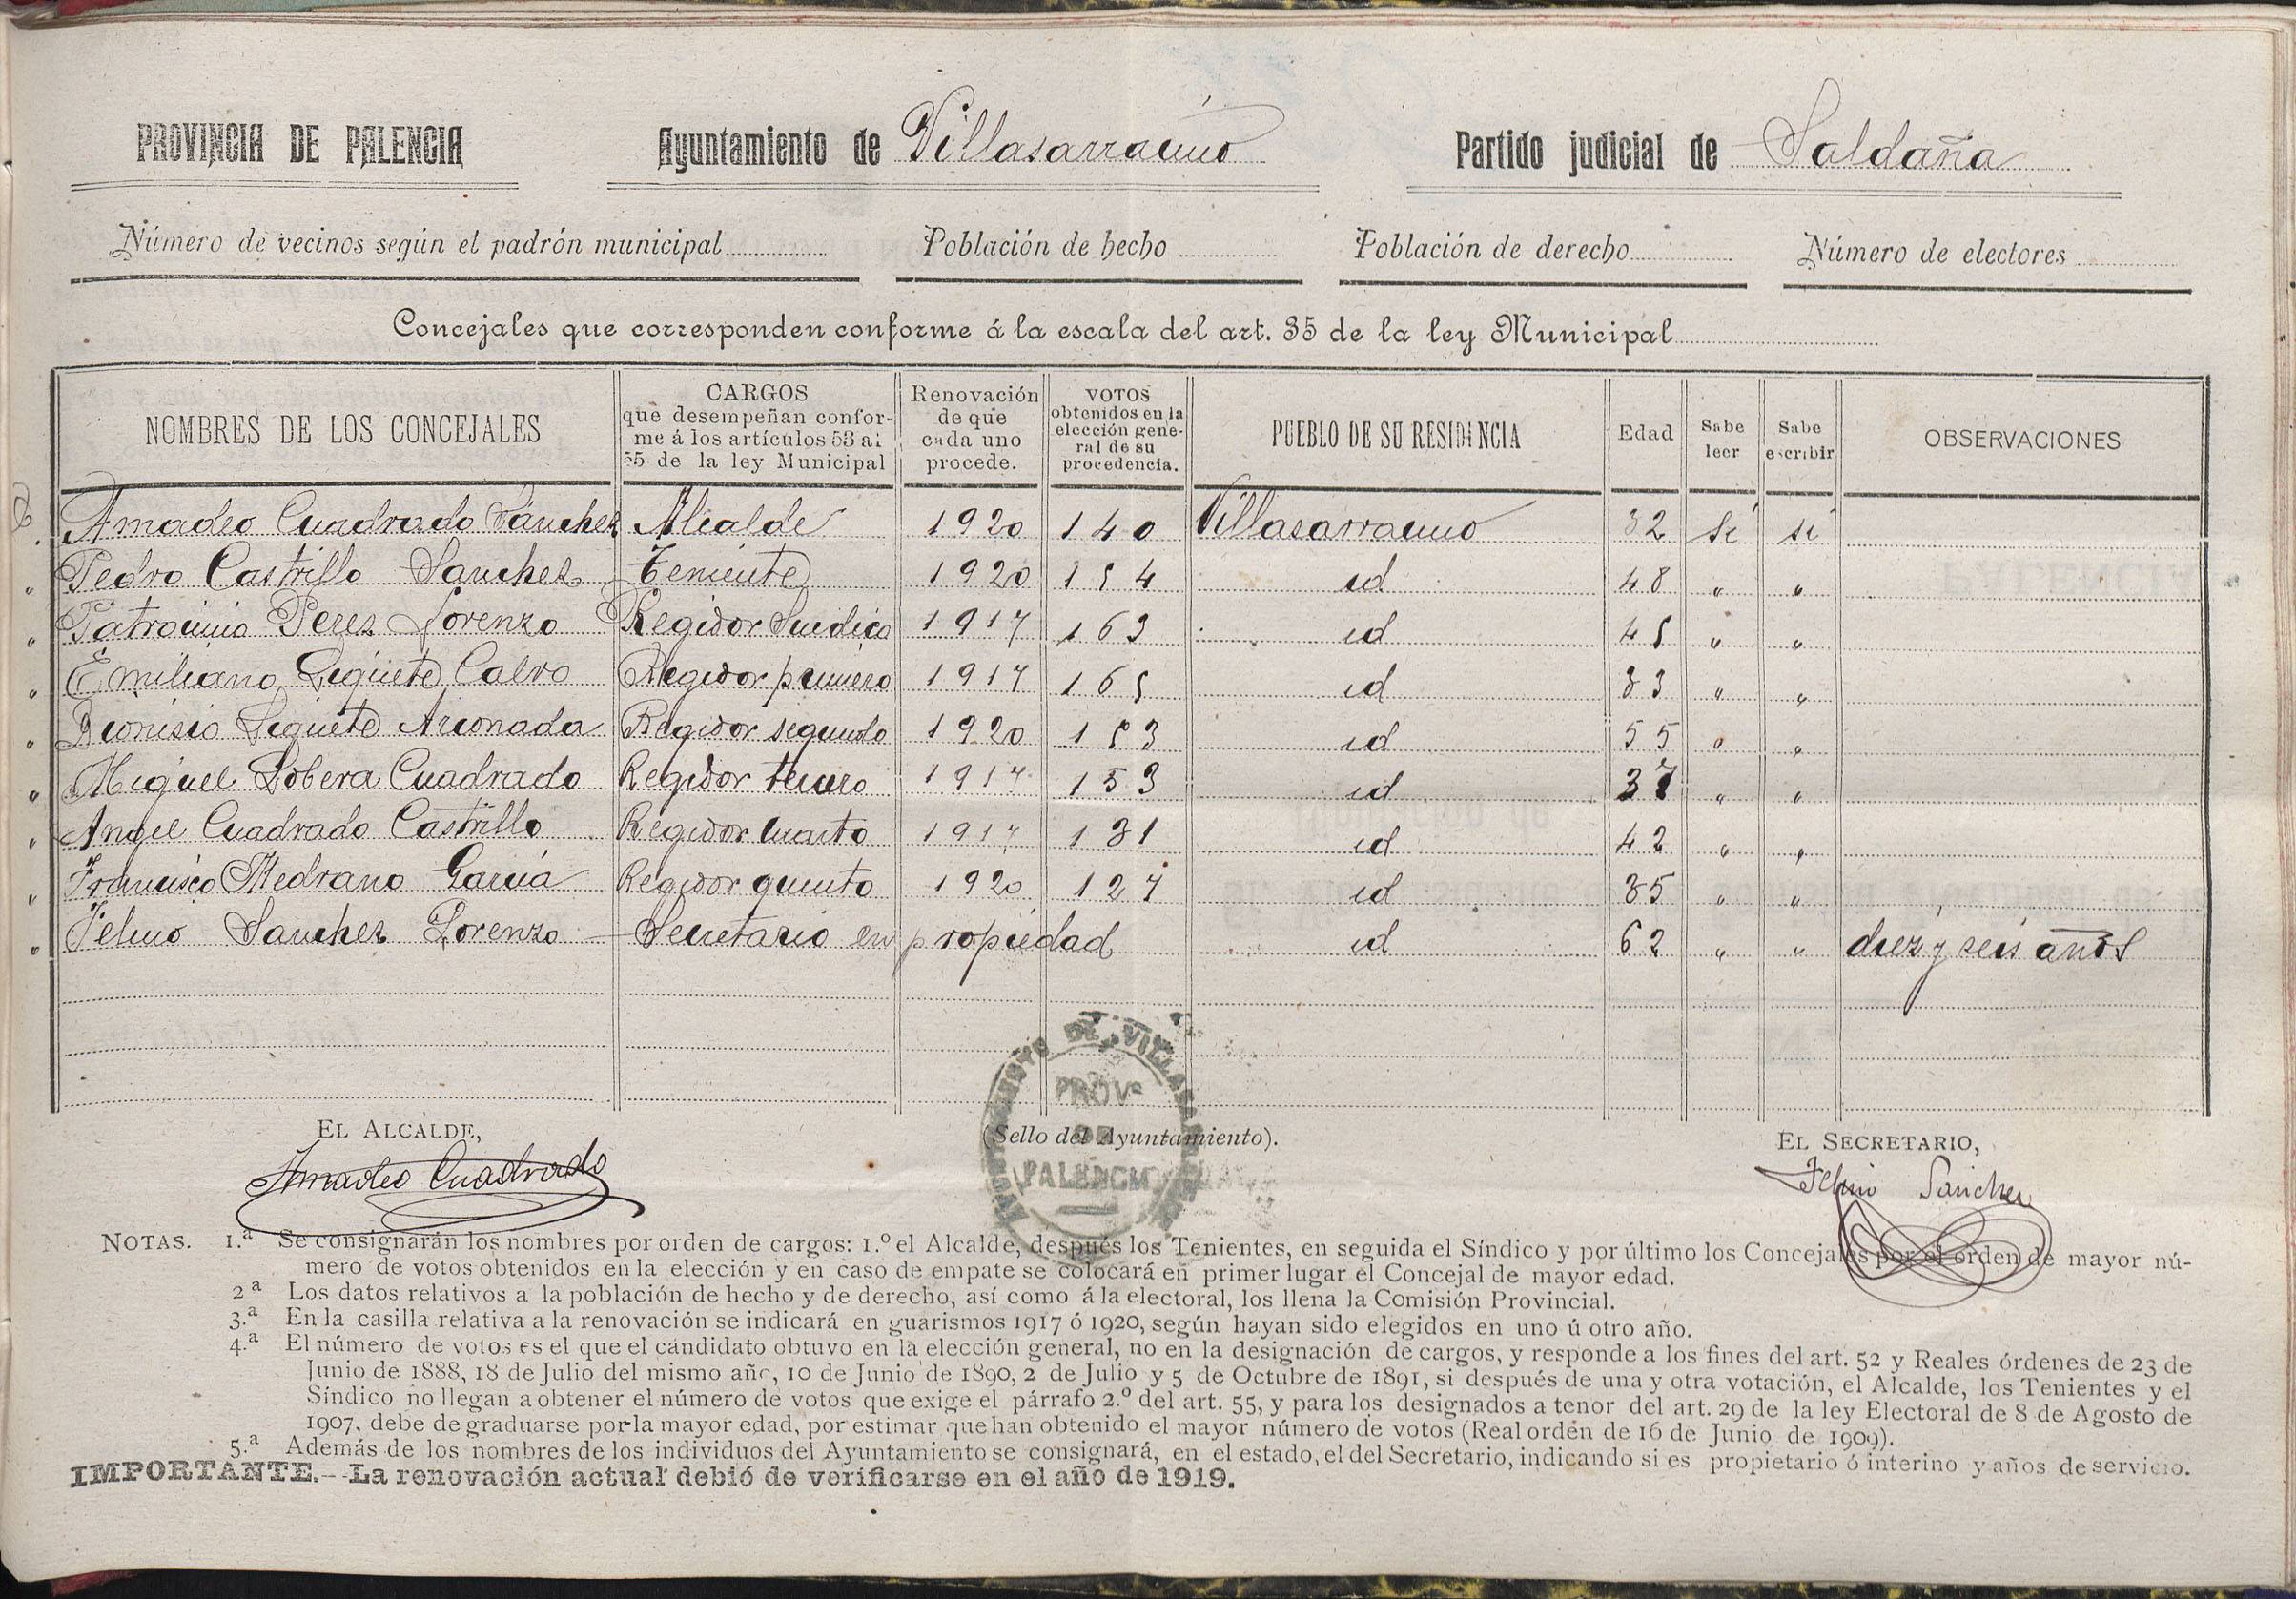 PROVINCIA DE PALENCIA Ayuntamiento de Villasarracino Partido judicial de Saldaña
Número de vecinos según el padrón municipal Población de hecho Población de derecho Número de electores
Concejales que corresponden conforme á la escala del art. 35 de la ley Municipal
NOMBRES DE LOS CONCEJALES
CARGOS
que desempeñan confor-
me á los artículos 53 al
55 de la ley Municipal
Renovación
de que
cada uno
procede.
VOTOS
obtenidos en la
elección gene-
ral de su
procedencia.
PUEBLO DE SU RESIDENCIA
Edad
Sabe
leer
Sabe
escribir
OBSERVACIONES
D. Amadeo Cuadrado Sanchez Alcalde 1920 140 Villasarracino 32 si si
" Pedro Castrillo Sanchez Teniente 1920 154 id 48 " "
" Patrocinio Perez Lorenzo Regidor Sindico 1917 163 id 45 " "
" Emiliano Legüete Calvo Regidor primero 1917 165 id 33 " "
" Dionisio Legüete Arconada Regidor segundo 1920 153 id 55 " "
" Miguel Lobera Cuadrado Regidor tercero 1917 153 id 37 " "
" Angel Cuadrado Castrillo Regidor cuarto 1917 131 id 42 " "
" Francisco Medrano Garcia Regidor quinto 1920 127 id 35 " "
" Felino Sanchez Lorenzo – Secretario en propiedad id 62 " " diez y seis años
EL ALCALDE,
Amadeo Cuadrado
(Sello del Ayuntamiento).
AYUNTAMIENTO DE VILLASARRACINO
PROVª
DE
PALENCIA
EL SECRETARIO,
Felino Sanchez
NOTAS. 1.ª Se consignarán los nombres por orden de cargos: 1.º el Alcalde, después los Tenientes, en seguida el Síndico y por último los Concejales por el orden de mayor nú-
mero de votos obtenidos en la elección y en caso de empate se colocará en primer lugar el Concejal de mayor edad.
2ª Los datos relativos a la población de hecho y de derecho, así como á la electoral, los llena la Comisión Provincial.
3.ª En la casilla relativa a la renovación se indicará en guarismos 1917 ó 1920, según hayan sido elegidos en uno ú otro año.
4.ª El número de votos es el que el candidato obtuvo en la elección general, no en la designación de cargos, y responde a los fines del art. 52 y Reales órdenes de 23 de
Junio de 1888, 18 de Julio del mismo año, 10 de Junio de 1890, 2 de Julio y 5 de Octubre de 1891, si después de una y otra votación, el Alcalde, los Tenientes y el
Síndico no llegan a obtener el número de votos que exige el párrafo 2.º del art. 55, y para los designados a tenor del art. 29 de la ley Electoral de 8 de Agosto de
1907, debe de graduarse por la mayor edad, por estimar que han obtenido el mayor número de votos (Real orden de 16 de Junio de 1909).
5.ª Además de los nombres de los individuos del Ayuntamiento se consignará, en el estado, el del Secretario, indicando si es propietario ó interino y años de servicio.
IMPORTANTE.—La renovación actual debió de verificarse en el año de 1919.